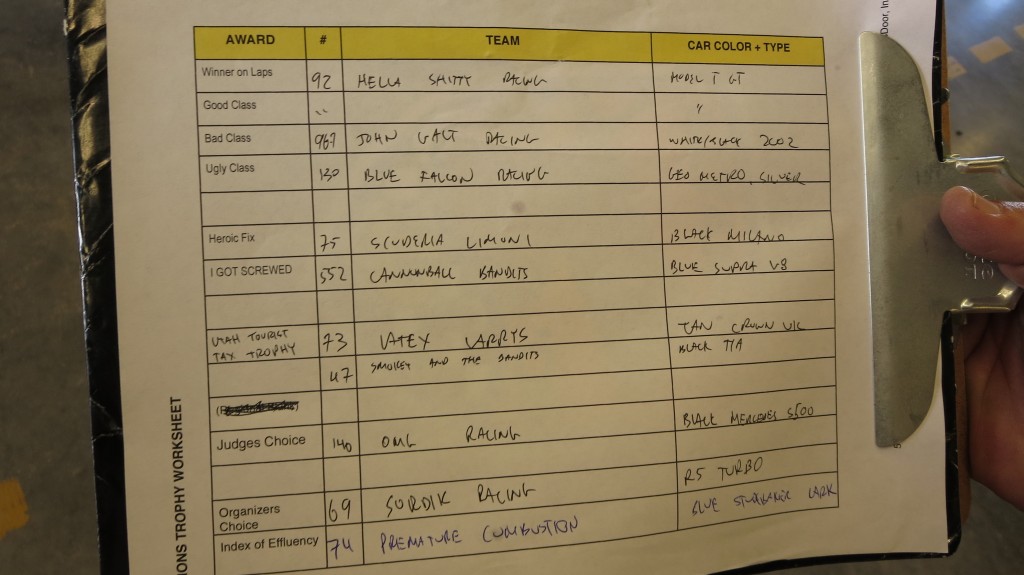 AWARD # TEAM CAR COLOR + TYPE
Winner on Laps 92 HELLA SHITTY RACING MODEL T GT
Good Class " "
Bad Class 967 JOHN GALT RACING WHITE/BLACK 2002
Ugly Class 130 BLUE FALCON RACING GEO METRO, SILVER
Heroic Fix 75 SCUDERIA LIMONI BLACK MILANO
I GOT SCREWED 552 CANNONBALL BANDITS BLUE SUPRA V8
UTAH TOURIST
TAX TROPHY 73 LATEX LARRYS TAN CROWN VIC
47 SMOKEY AND THE BANDITS BLACK T/A
Judges Choice 140 OML RACING BLACK MERCEDES S500
Organizers
Choice 69 SURDIK RACING R5 TURBO
Index of Effluency 74 PREMATURE COMBUSTION BLUE STUDEBAKER LARK
IONS TROPHY WORKSHEET
Door, In